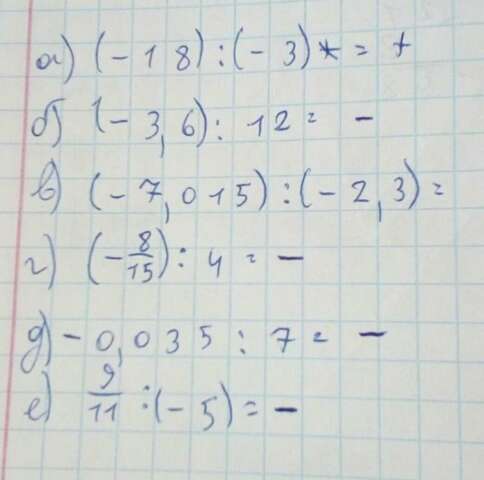 а) (-18) : (-3) * = +
б) (-3,6) : 12 = -
в) (-7,015) : (-2,3) =
г) (-8/15) : 4 = -
д) -0,035 : 7 = -
е) 9/11 : (-5) = -